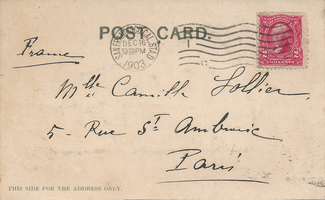 POST CARD.
DEC 16
12 30 PM
1903
France
Mlle Camille Sollier
5 - Rue St Ambroise
Paris
THIS SIDE FOR THE ADDRESS ONLY.